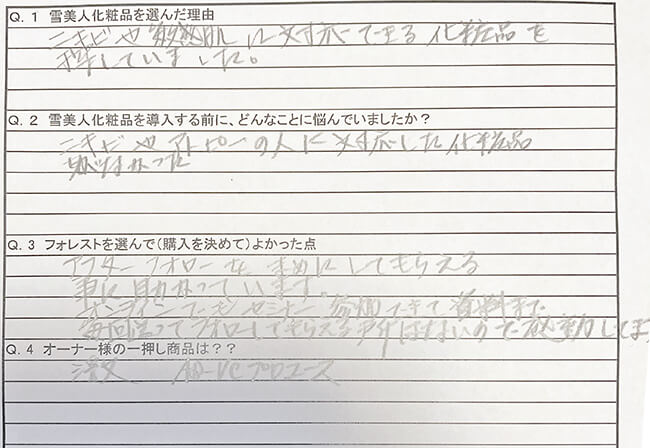 Q. 1 雪美人化粧品を選んだ理由
ニキビや敏感肌に対応できる化粧品を
探していました。
Q. 2 雪美人化粧品を導入する前に、どんなことに悩んでいましたか？
ニキビやアトピーの人に対応した化粧品
がなかった
Q. 3 フォレストを選んで（購入を決めて）よかった点
アフターフォローをまめにしてもらえる
事に助かっています。
オンラインでもセミナー参加できて資料まで
毎回送ってフォローしてもらえる事はないので感動してま
Q. 4 オーナー様の一押し商品は？？
VCプロユース